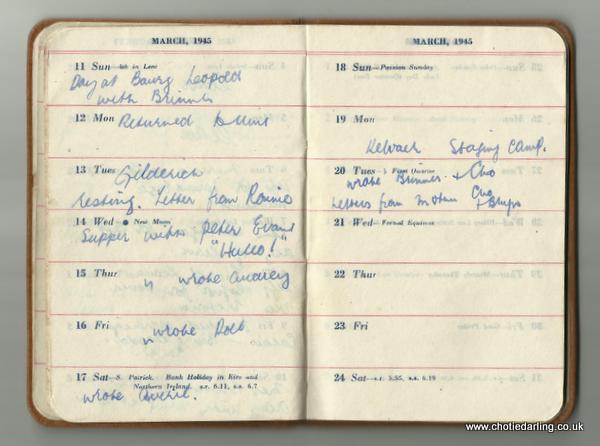 MARCH, 1945
11 Sun—4th in Lent
Day at Bourg Leopold
with Brinner
12 Mon Returned to Unit
13 Tues Gilderich
resting. Letter from Ronnie
14 Wed—● New Moon
Supper with Peter Evans
"Hullo!"
15 Thur
" wrote Audrey
16 Fri
" wrote
17 Sat—S. Patrick. Bank Holiday in Eire and
Northern Ireland. s.r. 6.11, s.s. 6.7
wrote
MARCH, 1945
18 Sun—Passion Sunday
19 Mon
Kelvaer Staging Camp.
20 Tues—☽ First Quarter
wrote Brinner + Cho
Letters from Mother Cho
+
21 Wed—Vernal Equinox
22 Thur
23 Fri
24 Sat—s.r. 5.55, s.s. 6.19
www.chotiedarling.co.uk